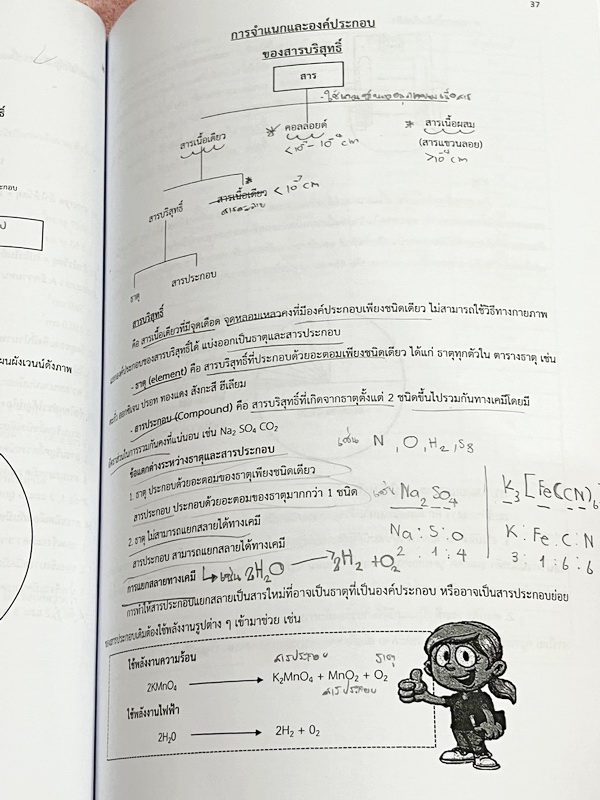 37
การจำแนกและองค์ประกอบ
ของสารบริสุทธิ์
สาร
สารเนื้อเดียว
* คอลลอยด์
* สารเนื้อผสม
(สารแขวนลอย)
สารบริสุทธิ์
สารเนื้อเดียว
สารละลาย
ธาตุ
สารประกอบ
สารบริสุทธิ์
คือ สารเนื้อเดียวที่มีจุดเดือด จุดหลอมเหลวคงที่มีองค์ประกอบเพียงชนิดเดียว ไม่สามารถใช้วิธีทางกายภาพ
แยกองค์ประกอบของสารบริสุทธิ์ได้ แบ่งออกเป็นธาตุและสารประกอบ
- ธาตุ (element) คือ สารบริสุทธิ์ที่ประกอบด้วยอะตอมเพียงชนิดเดียว ได้แก่ ธาตุทุกตัวใน ตารางธาตุ เช่น
ออกซิเจน ปรอท ทองแดง สังกะสี ฮีเลียม
- สารประกอบ (Compound) คือ สารบริสุทธิ์ที่เกิดจากธาตุตั้งแต่ 2 ชนิดขึ้นไปรวมกันทางเคมีโดยมี
อัตราส่วนในการรวมกันคงที่แน่นอน เช่น Na₂ SO₄ CO₂
ข้อแตกต่างระหว่างธาตุและสารประกอบ
เช่น N , O , H₂ , S₈
1. ธาตุ ประกอบด้วยอะตอมของธาตุเพียงชนิดเดียว
สารประกอบ ประกอบด้วยอะตอมของธาตุมากกว่า 1 ชนิด
เช่น Na₂ SO₄
K₃ [Fe(CN)₆
2. ธาตุ ไม่สามารถแยกสลายได้ทางเคมี
Na : S : O
K : Fe : C : N
สารประกอบ สามารถแยกสลายได้ทางเคมี
2 : 1 : 4
3 : 1 : 6 : 6
การแยกสลายทางเคมี
เช่น 2H₂O → 2H₂ + O₂
การทำให้สารประกอบแยกสลายเป็นสารใหม่ที่อาจเป็นธาตุที่เป็นองค์ประกอบ หรืออาจเป็นสารประกอบย่อย
ของสารประกอบเดิมต้องใช้พลังงานรูปต่าง ๆ เข้ามาช่วย เช่น
ใช้พลังงานความร้อน
สารประกอบ ธาตุ
2KMnO₄ → K₂MnO₄ + MnO₂ + O₂
สารประกอบ
ใช้พลังงานไฟฟ้า
2H₂O → 2H₂ + O₂